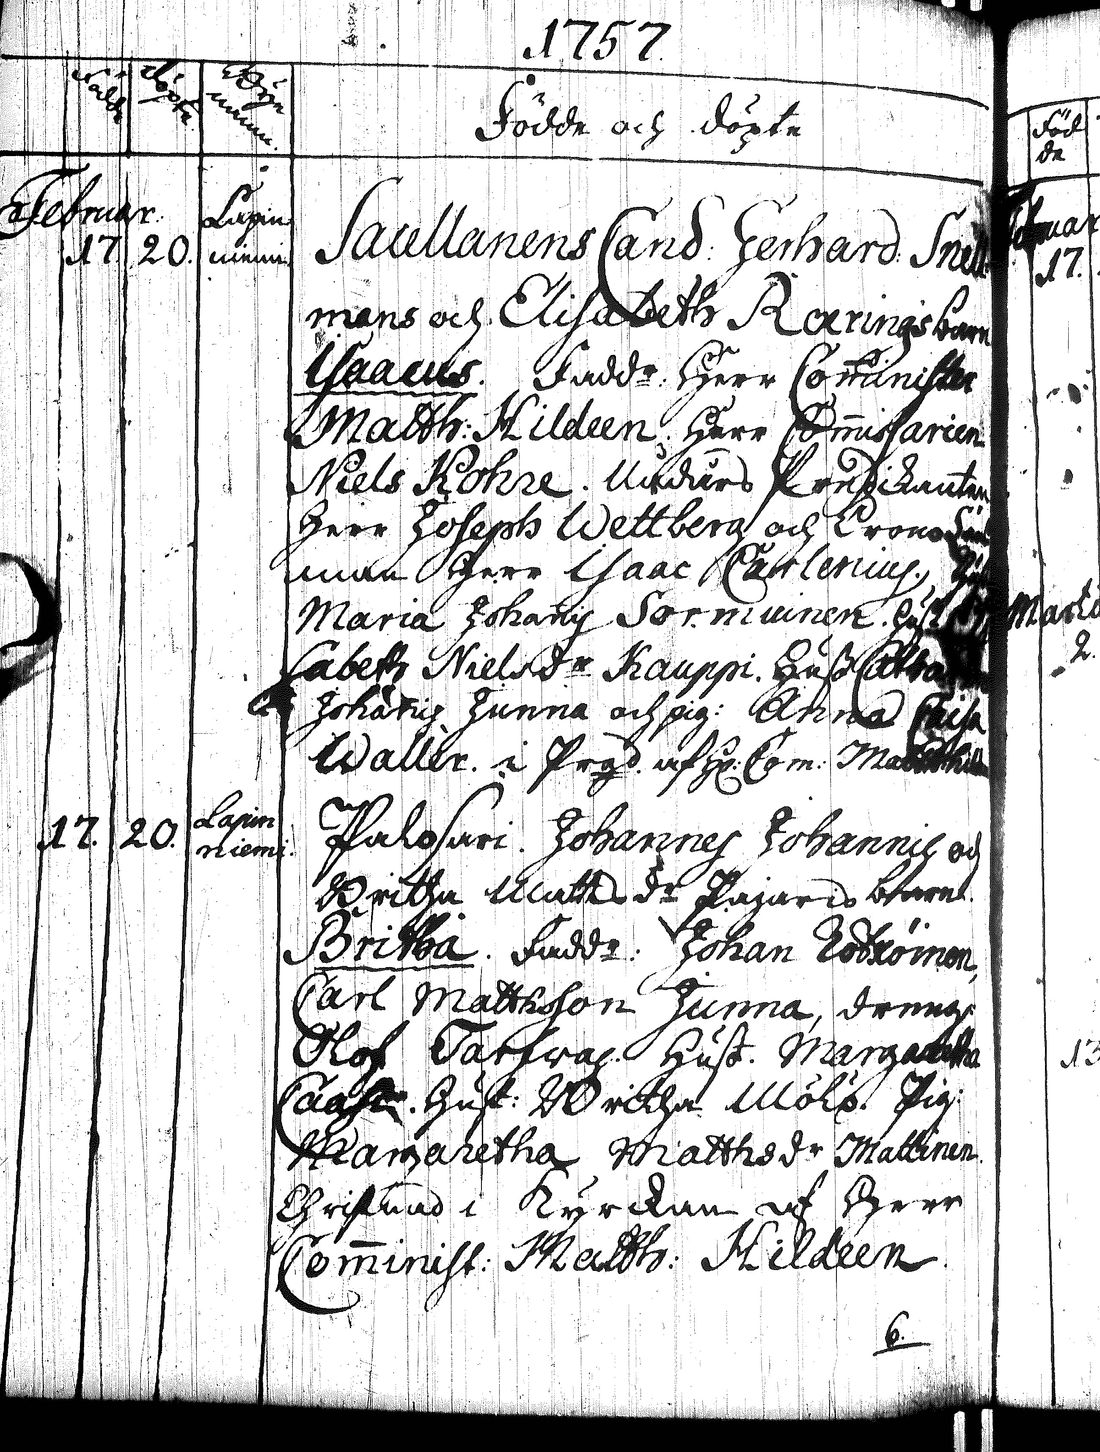 1757.
Födde
Döpte
Byarnam.
Födde och döpte
Februar.
17. 20. Lapinniemi.
Sacellanens Cand: Gerhard: Snell
mans och Elisabeth Roerings barn
Isaacus. Faddr: Herr Comminister
Matth: Hildeen. Herr Commissarien
Niels Kohre. Predikanten
Herr Joseph Wettberg och Crono
man Herr Isaac Carlenius.
Maria Johanis Sormuinen. Hust
sabeth Nielsdr Kauppi. Hust
Johanis Junna och pig: Anna Caisa
Wallér. i Prgd. af H: Com: Matth
17. 20. Lapinniemi.
Palosari. Johannes Johannis och
Britha Mattsdr Pajaris barn.
Britha. Faddr: Johan
Carl Mattsson Junna, dreng:
Olof Hust. Margaretha
Hust: Britha Pig:
Margaretha Matthsdr Mattinen.
Christnad i Kyrckan af Herr
Comminist: Matth: Hildeen.
6.
Födde
Februar
17.
Marti
2.
13